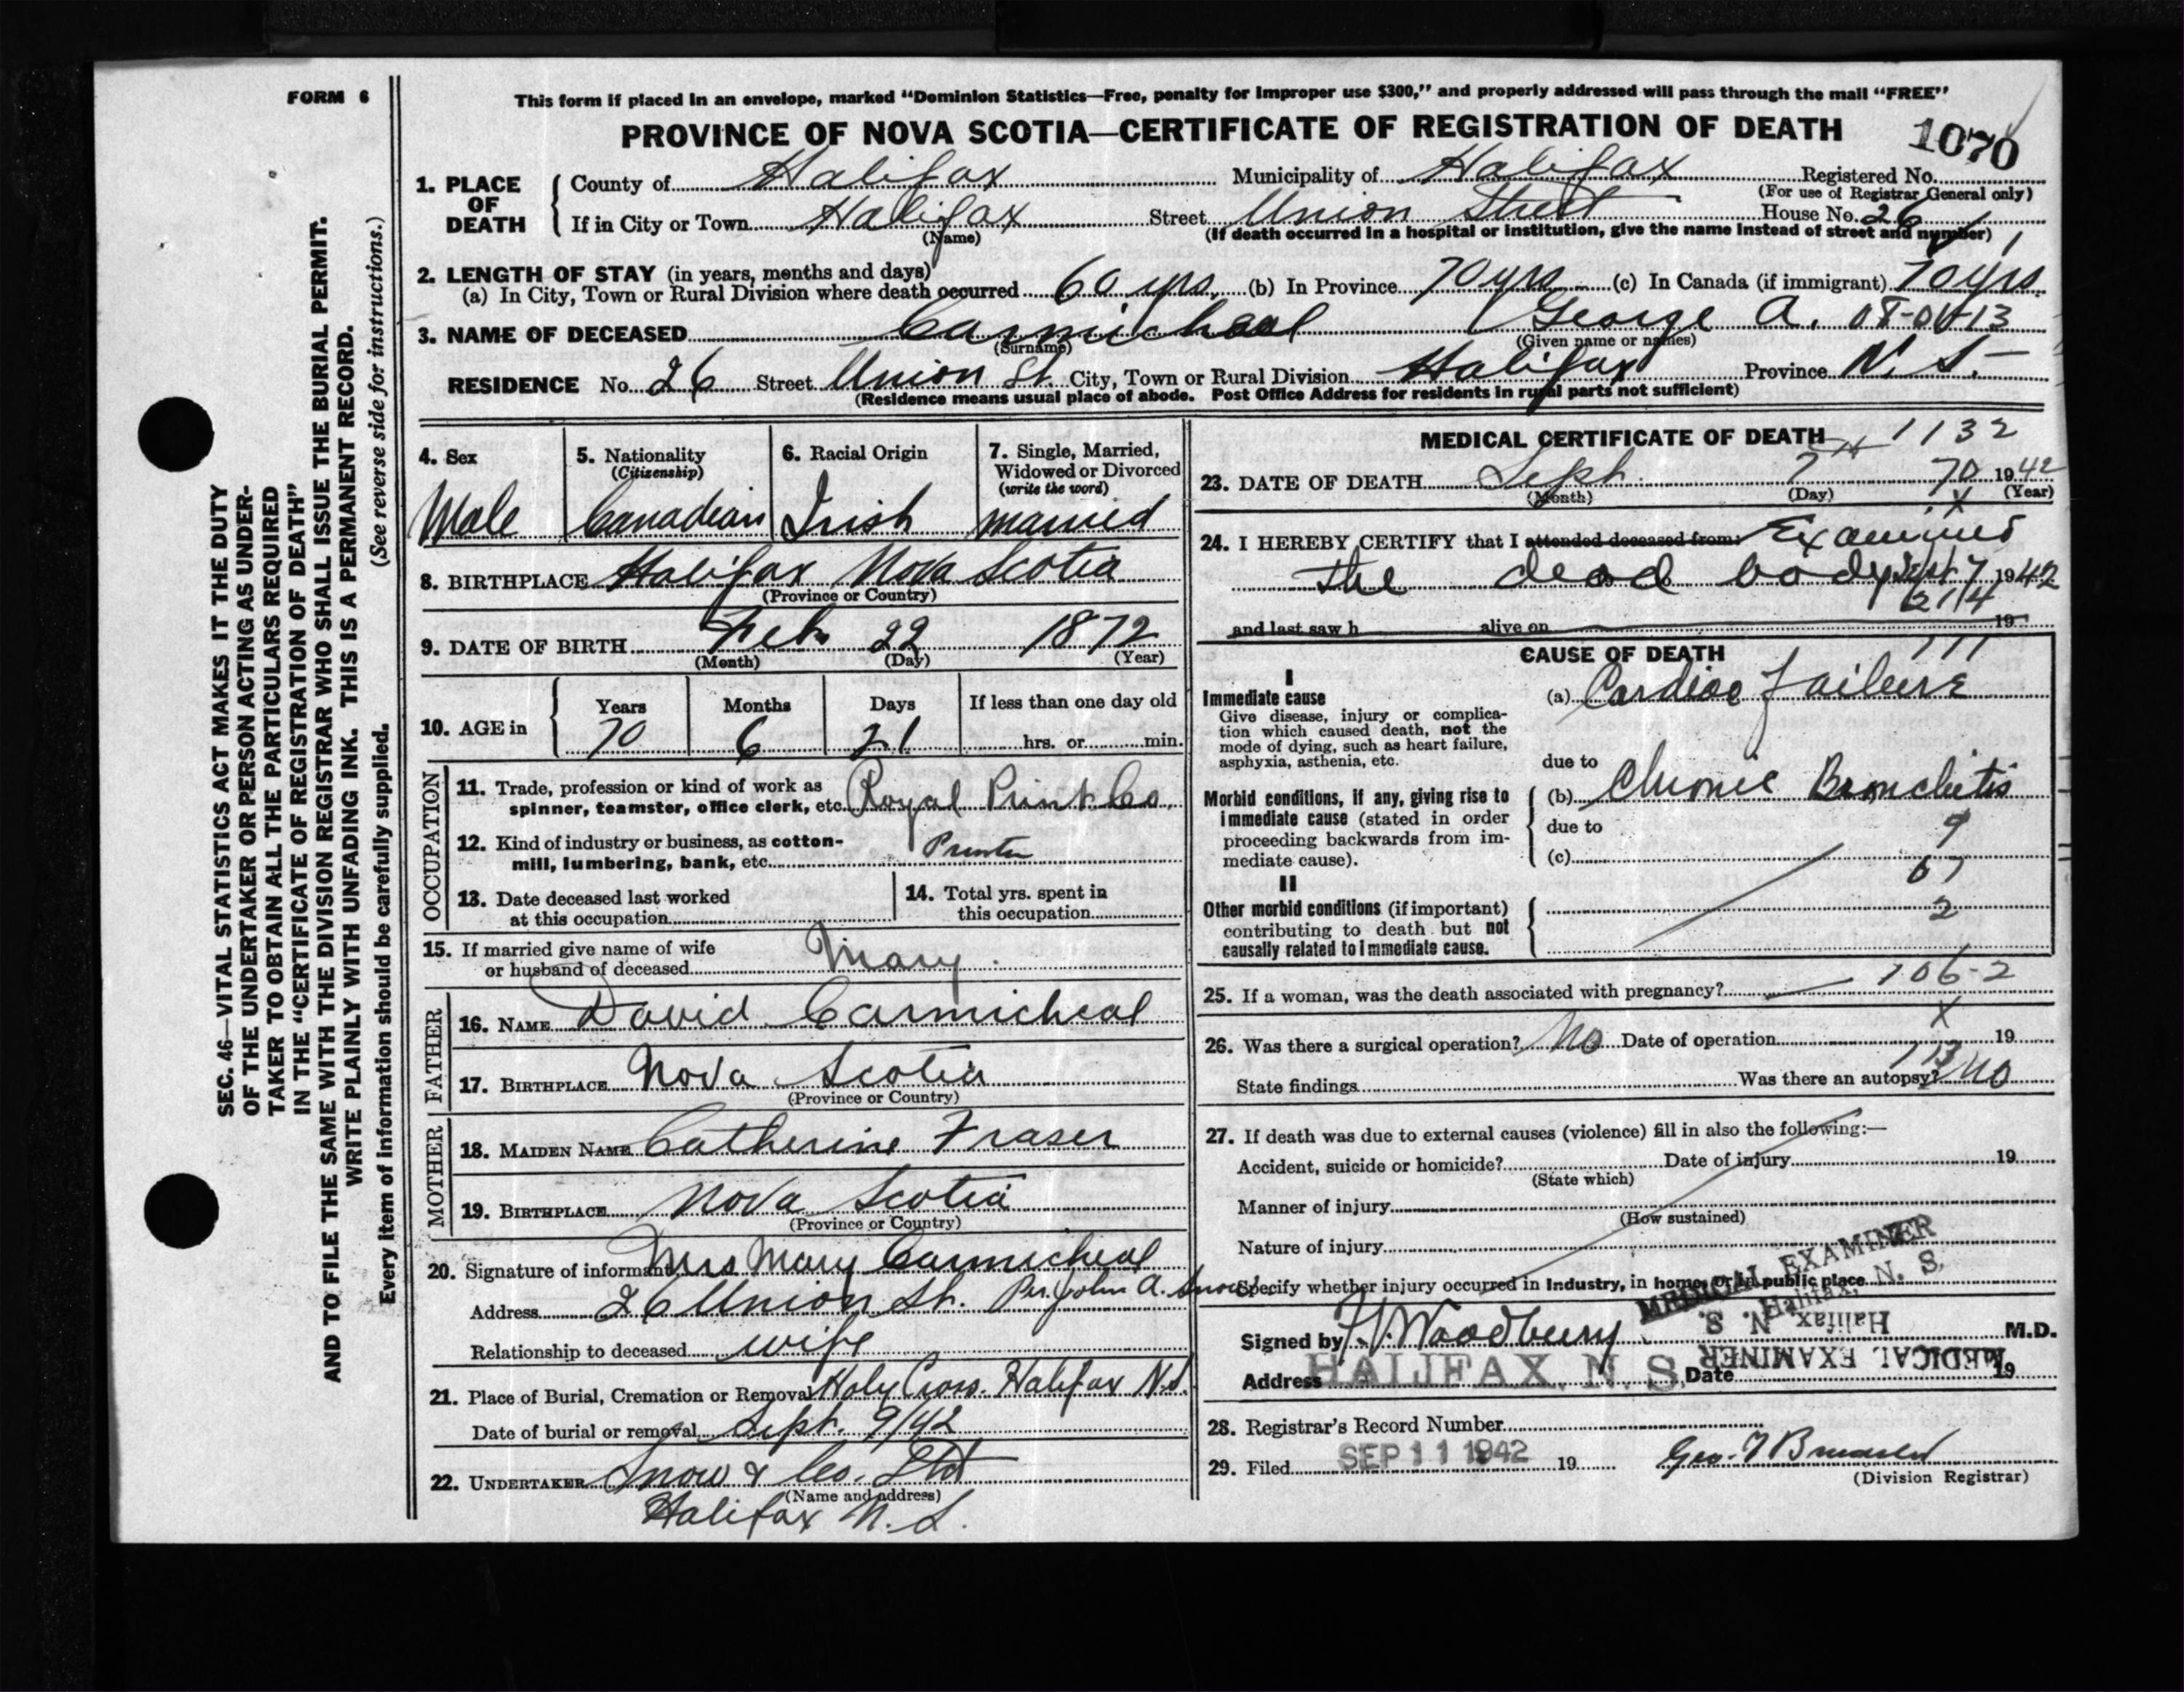 FORM 6
This form if placed in an envelope, marked "Dominion Statistics—Free, penalty for improper use $300," and properly addressed will pass through the mail "FREE"
PROVINCE OF NOVA SCOTIA—CERTIFICATE OF REGISTRATION OF DEATH
1070
1. PLACE OF DEATH County of Halifax Municipality of Halifax Registered No.
(For use of Registrar General only)
If in City or Town Halifax Street Union Street House No. 26
(Name) (If death occurred in a hospital or institution, give the name instead of street and number)
2. LENGTH OF STAY (in years, months and days)
(a) In City, Town or Rural Division where death occurred 60 yrs. (b) In Province 70 yrs (c) In Canada (if immigrant) 70 yrs
3. NAME OF DECEASED Carmichael George A.
(Surname) (Given name or names)
RESIDENCE No. 26 Street Union St. City, Town or Rural Division Halifax Province N. S.
(Residence means usual place of abode. Post Office Address for residents in rural parts not sufficient)
4. Sex 5. Nationality (Citizenship) 6. Racial Origin 7. Single, Married, Widowed or Divorced (write the word)
Male Canadian Irish married
8. BIRTHPLACE Halifax Nova Scotia
(Province or Country)
9. DATE OF BIRTH Feb 22 1872
(Month) (Day) (Year)
10. AGE in Years Months Days If less than one day old
70 6 21 hrs. or min.
OCCUPATION
11. Trade, profession or kind of work as
spinner, teamster, office clerk, etc. Royal Print Co.
12. Kind of industry or business, as cotton-
mill, lumbering, bank, etc. Printer
13. Date deceased last worked
at this occupation
14. Total yrs. spent in
this occupation
15. If married give name of wife
or husband of deceased Mary
FATHER
16. NAME David Carmicheal
17. BIRTHPLACE Nova Scotia
(Province or Country)
MOTHER
18. MAIDEN NAME Catherine Fraser
19. BIRTHPLACE Nova Scotia
(Province or Country)
20. Signature of informant Mrs Mary Carmicheal
Address 26 Union St. Per John A. Snow
Relationship to deceased wife
21. Place of Burial, Cremation or Removal Holy Cross. Halifax N.S.
Date of burial or removal Sept. 9/42
22. UNDERTAKER Snow & Co. Ltd
(Name and address)
Halifax N. S.
MEDICAL CERTIFICATE OF DEATH 1132
23. DATE OF DEATH Sept. 7th 70 1942
(Month) (Day) (Year)
X
24. I HEREBY CERTIFY that I attended deceased from: Examined
the dead body Sept 7 1942
214
and last saw h alive on 19
CAUSE OF DEATH
111
I
Immediate cause
Give disease, injury or complica-
tion which caused death, not the
mode of dying, such as heart failure,
asphyxia, asthenia, etc.
(a) Cardiac Failure
due to
Morbid conditions, if any, giving rise to
immediate cause (stated in order
proceeding backwards from im-
mediate cause).
(b) Chronic Bronchitis
due to 9
(c)
67
II
Other morbid conditions (if important)
contributing to death but not
causally related to immediate cause.
2
106-2
25. If a woman, was the death associated with pregnancy?
X
26. Was there a surgical operation? No Date of operation 19
113
State findings Was there an autopsy? No
27. If death was due to external causes (violence) fill in also the following:—
Accident, suicide or homicide? Date of injury 19
(State which)
Manner of injury
(How sustained)
Nature of injury
Specify whether injury occurred in Industry, in home, or in public place
MEDICAL EXAMINER
Halifax, N. S.
Signed by Woodbury M.D.
MEDICAL EXAMINER
Halifax, N. S.
Address HALIFAX, N. S. Date 19
28. Registrar's Record Number
29. Filed SEP 11 1942 19 Geo.
(Division Registrar)
SEC. 46—VITAL STATISTICS ACT MAKES IT THE DUTY
OF THE UNDERTAKER OR PERSON ACTING AS UNDER-
TAKER TO OBTAIN ALL THE PARTICULARS REQUIRED
IN THE "CERTIFICATE OF REGISTRATION OF DEATH"
AND TO FILE THE SAME WITH THE DIVISION REGISTRAR WHO SHALL ISSUE THE BURIAL PERMIT.
WRITE PLAINLY WITH UNFADING INK. THIS IS A PERMANENT RECORD.
Every item of information should be carefully supplied. (See reverse side for instructions.)